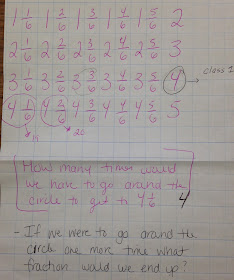 1 1/6 1 2/6 1 3/6 1 4/6 1 5/6 2
2 1/6 2 2/6 2 3/6 2 4/6 2 5/6 3
3 1/6 3 2/6 3 3/6 3 4/6 3 5/6 4 → class 1
4 1/6 4 2/6 4 3/6 4 4/6 4 5/6 5
20
How many times would
we have to go around the
circle to get to 4 1/6 4
- If we were to go around the
circle one more time what
fraction would we end up?